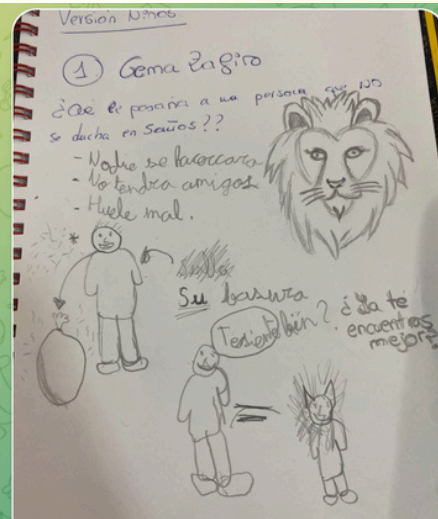 Versión Niños
1 Gema Zafiro
¿Qué le pasaría a una persona que NO
se ducha en 5 años??
- Nadie se le acercara
- No tendra amigos
- Huele mal.
Su basura
Te siente bien?
¿Ya te
encuentras
mejor?